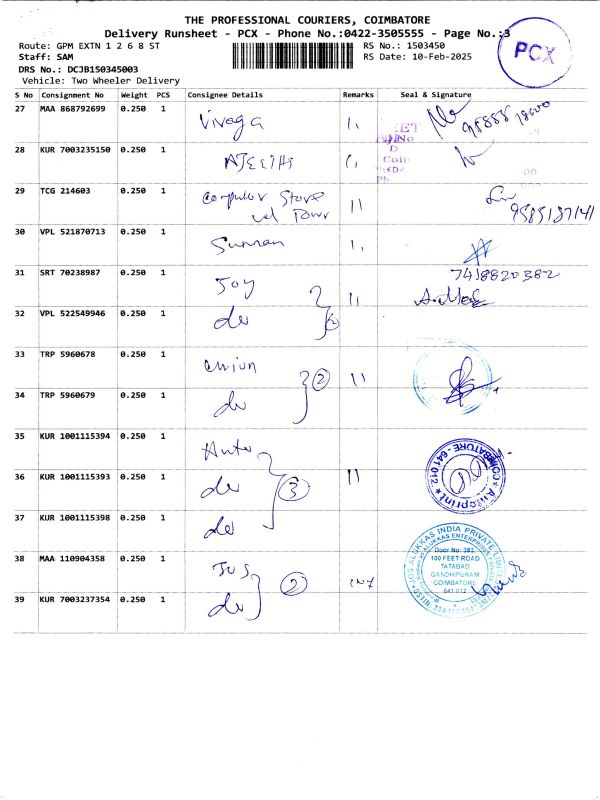 THE PROFESSIONAL COURIERS, COIMBATORE
Delivery Runsheet - PCX - Phone No.:0422-3505555 - Page No.:3
Route: GPM EXTN 1 2 6 8 ST
RS No.: 1503450
Staff: SAM
RS Date: 10-Feb-2025
DRS No.: DCJB150345003
Vehicle: Two Wheeler Delivery
PCX
S No Consignment No Weight PCS Consignee Details Remarks Seal & Signature
27 MAA 868792699 0.250 1
28 KUR 7003235150 0.250 1
29 TCG 214603 0.250 1 Computer Store
9585187141
30 VPL 521870713 0.250 1
7418820382
31 SRT 70238987 0.250 1 Joy
32 VPL 522549946 0.250 1 do
33 TRP 5960678 0.250 1
2
34 TRP 5960679 0.250 1 do
35 KUR 1001115394 0.250 1
36 KUR 1001115393 0.250 1 do 3
37 KUR 1001115398 0.250 1 do
38 MAA 110904358 0.250 1 Jos 2
39 KUR 7003237354 0.250 1 do
COIMBATORE - 641 012.
JOS ALUKKAS INDIA PRIVATE LIMITED
Door No: 383,
100 FEET ROAD
TATABAD
GANDHIPURAM
COIMBATORE
641 012